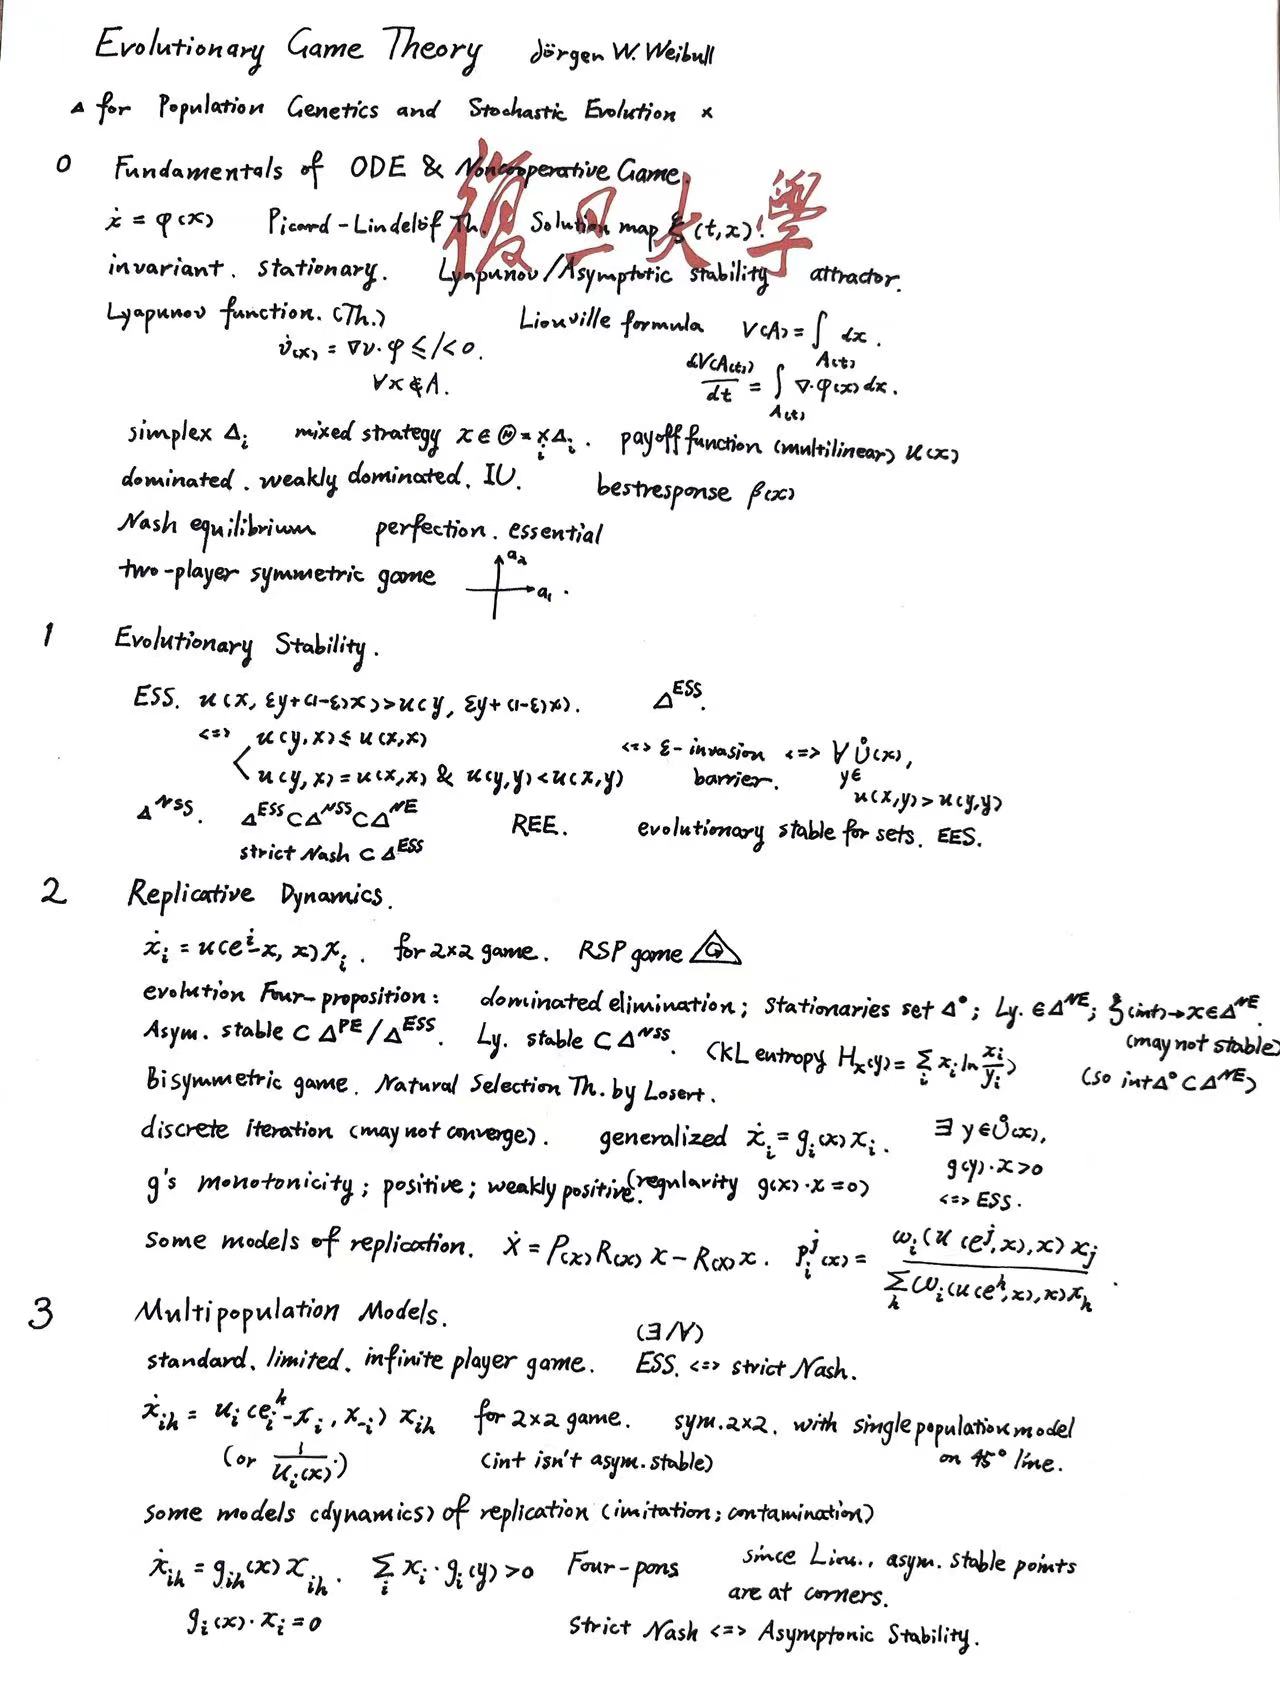 Evolutionary Game Theory Jörgen W. Weibull
△ for Population Genetics and Stochastic Evolution ×
0 Fundamentals of ODE & Noncooperative Game.
復旦大學
ẋ = φ(x) Picard-Lindelöf Th. Solution map ξ(t,x).
invariant. stationary. Lyapunov/Asymptotic stability attractor.
Lyapunov function. (Th.) Liouville formula V(A) = ∫_{A(t)} dx.
v̇(x) = ∇v·φ ≤/< 0. dV(A(t))/dt = ∫_{A(t)} ∇·φ(x)dx.
∀x∉A.
simplex Δᵢ mixed strategy x∈Θ=×ᵢΔᵢ. payoff function (multilinear) u(x)
dominated. weakly dominated. IU. bestresponse β(x)
Nash equilibrium perfection. essential
two-player symmetric game a₂ a₁.
1 Evolutionary Stability.
ESS. u(x, εy+(1-ε)x)>u(y, εy+(1-ε)x). Δ^ESS.
<=> u(y,x)≤u(x,x) <=> ε-invasion barrier. <=> ∀y∈Ů(x),
u(y,x)=u(x,x) & u(y,y)<u(x,y) u(x,y)>u(y,y)
Δ^NSS. Δ^ESS⊂Δ^NSS⊂Δ^NE REE. evolutionary stable for sets. EES.
strict Nash ⊂ Δ^ESS
2 Replicative Dynamics.
ẋᵢ = u(eⁱ-x, x)xᵢ. for 2×2 game. RSP game
evolution Four-proposition: dominated elimination; stationaries set Δ°; Ly. ∈Δ^NE; ξ(int)→x∈Δ^NE.
Asym. stable ⊂ Δ^PE/Δ^ESS. Ly. stable ⊂ Δ^NSS. (KL entropy Hₓ(y)=∑ᵢ xᵢ ln xᵢ/yᵢ) (may not stable)
Bisymmetric game. Natural Selection Th. by Losert. (so intΔ°⊂Δ^NE)
discrete iteration (may not converge). generalized ẋᵢ=gᵢ(x)xᵢ. ∃ y∈Ů(x),
g(y)·x>0
g's monotonicity; positive; weakly positive. (regularity g(x)·x=0) <=> ESS.
some models of replication. Ẋ = P(x)R(x)x-R(x)x. pᵢʲ(x) = ωᵢ(u(eʲ,x),x)xⱼ / ∑ₕ ωᵢ(u(eʰ,x),x)xₕ.
3 Multipopulation Models.
(∃/∀)
standard. limited. infinite player game. ESS. <=> strict Nash.
ẋᵢₕ = uᵢ(eᵢʰ-xᵢ, x₋ᵢ) xᵢₕ for 2×2 game. sym.2×2. with single population model
(or 1/uᵢ(x)·) (int isn't asym. stable) on 45° line.
some models (dynamics) of replication (imitation; contamination)
ẋᵢₕ = gᵢₕ(x)xᵢₕ. ∑ᵢ xᵢ·gᵢ(y)>0 Four-pons since Liou., asym. stable points
are at corners.
gᵢ(x)·xᵢ=0 strict Nash <=> Asymptonic Stability.